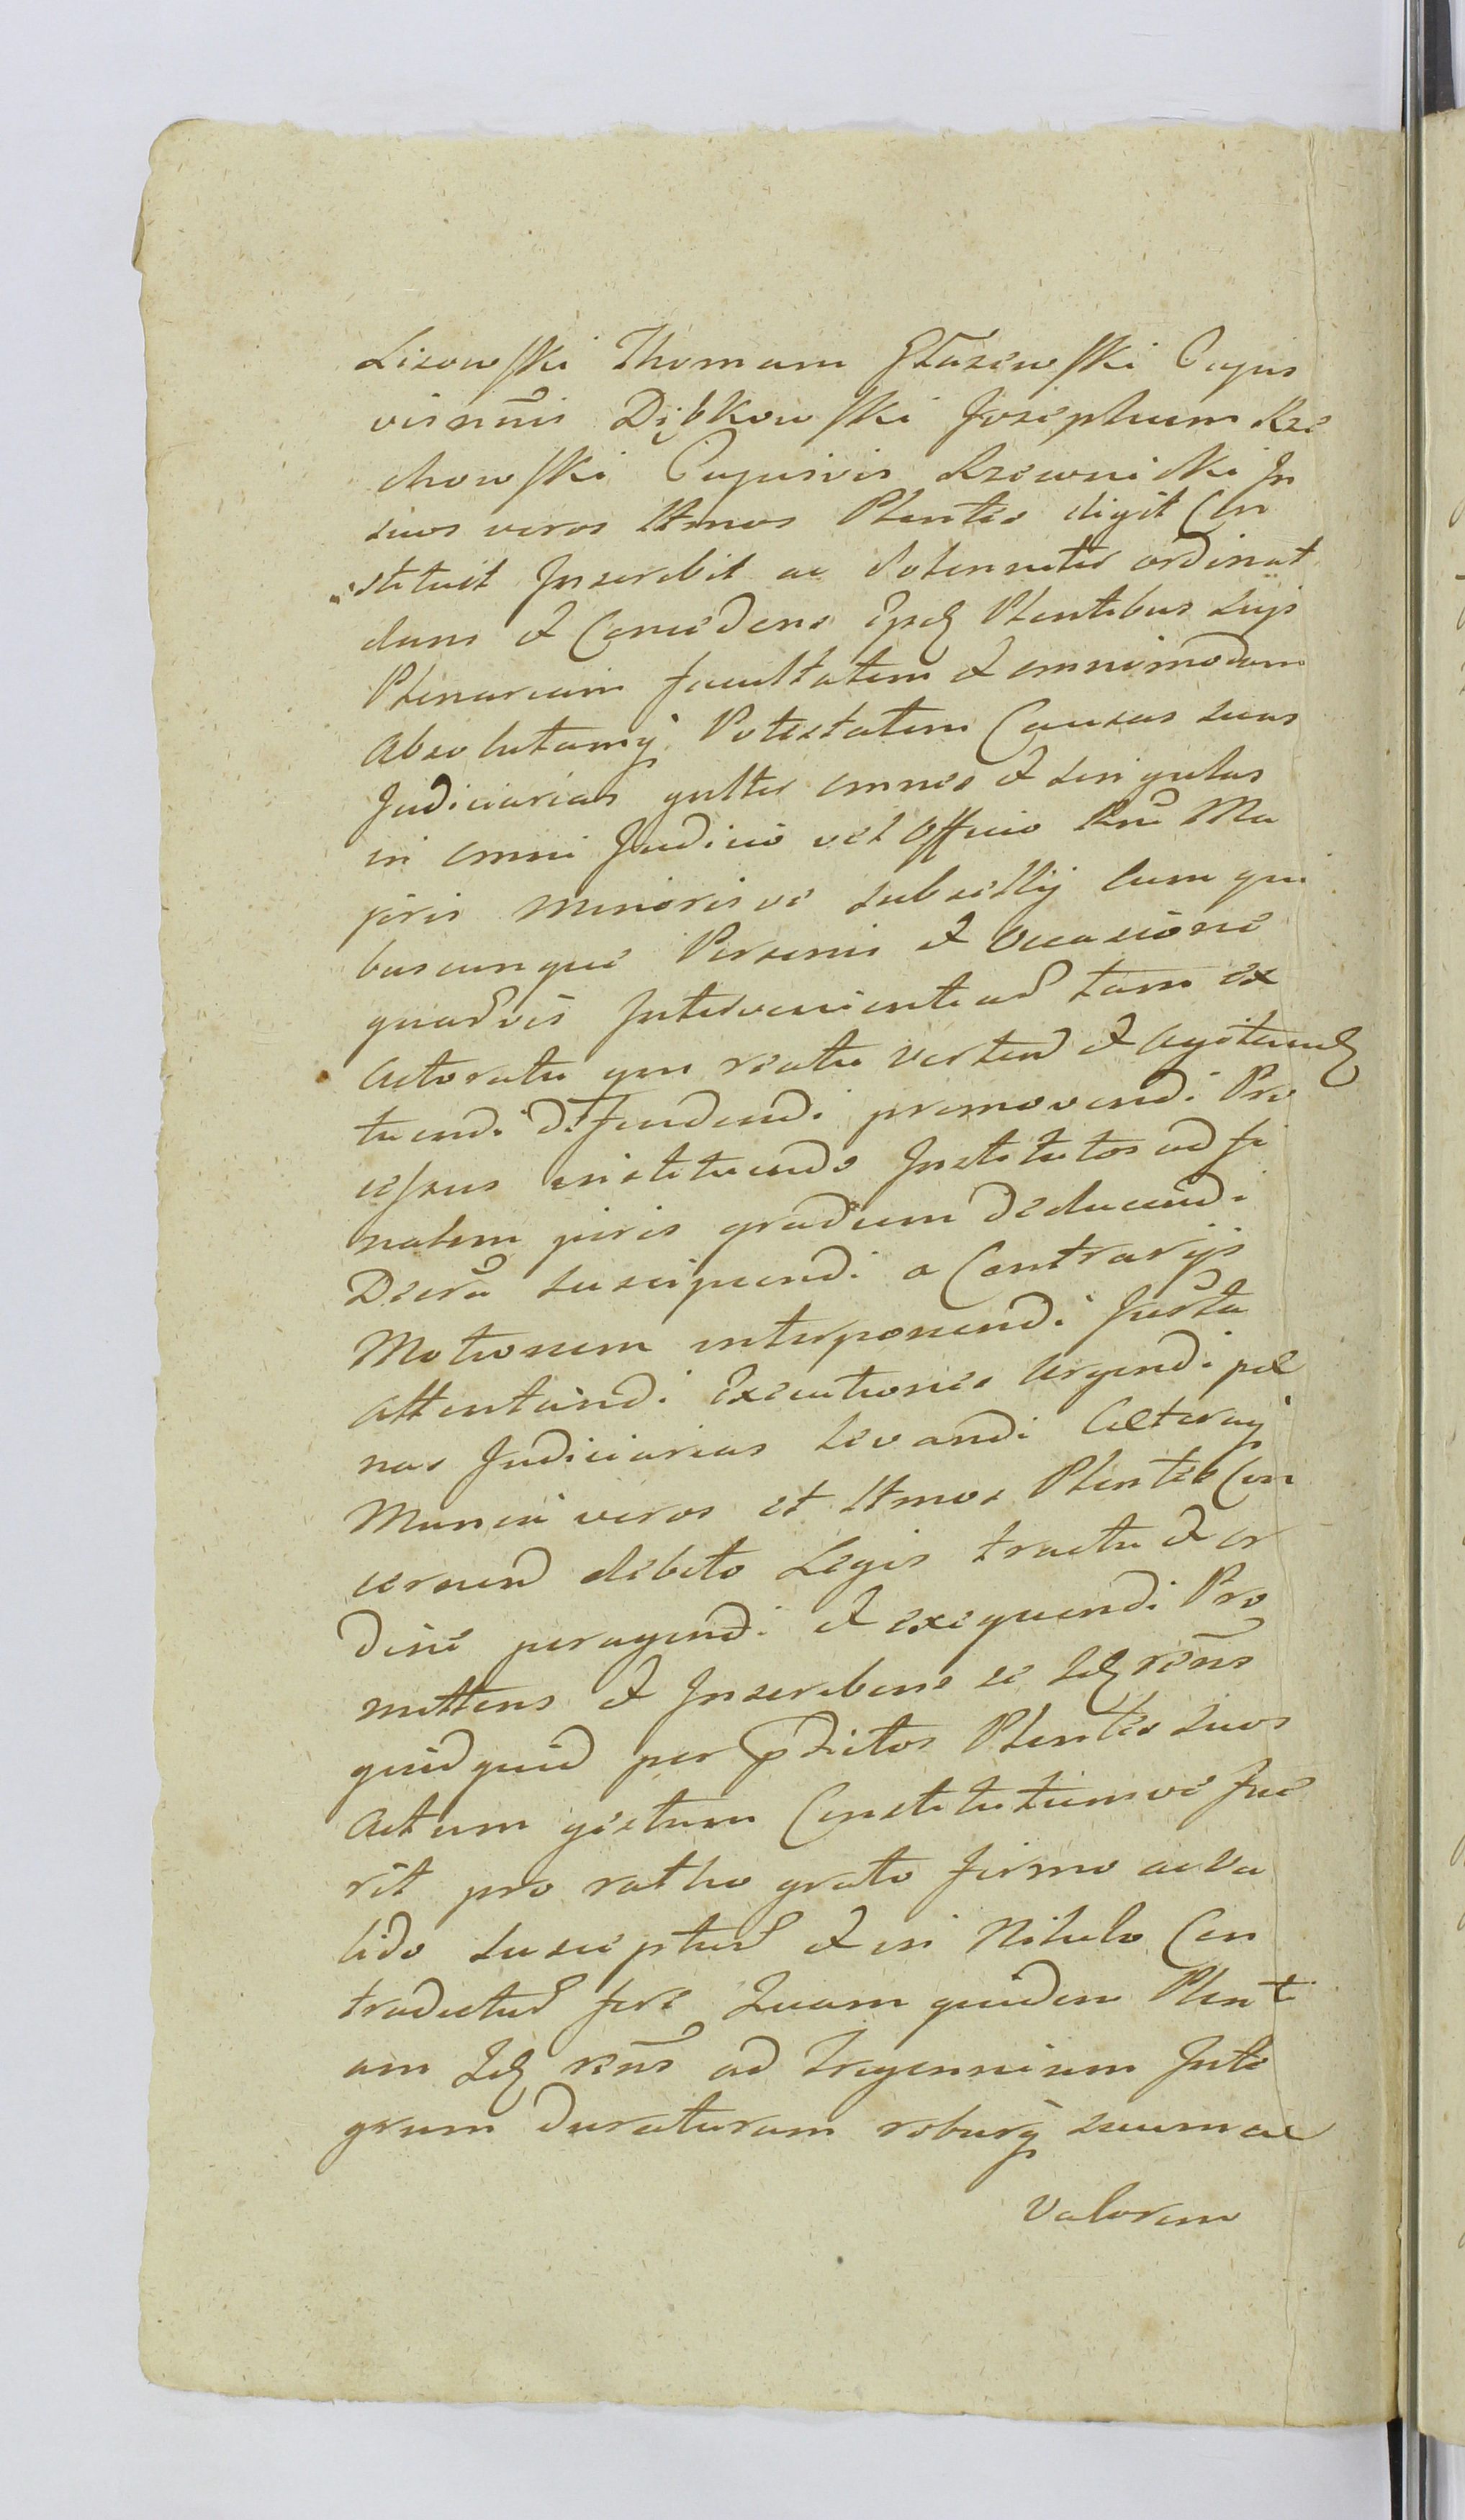 Lisowski Thomam Głażewski Cujus
vis nnis Dąbkowski Josephum Rze
chowski Cujusvis Rzewnicki In
suos veros Ltmos Plentes eligit Con
stituit Inscribit ac Solenniter ordinat
dans et Concedens Plentibus suis
Plenariam facultatem et omnimodam
Absolutamq Potestatem Causas suas
Judiciarias gnlter omnes et singulas
in omni Judicio vel Officio Rni Ma
joris minorisve subsellij cum qui
buscunque Personis et Occasione
quadvis Intervenientead tam ex
Actoratu qm reatu verten et agitand
tuendi deffendendi promovendi Pro
cessus instituendo Institutos ad fi
nalem juris gradum deducendi
Decra suscipiendi a Contrarijs
Motionem interponendi Jurta
Attentandi Executiones Urgendi pæ
nas Judiciarias levandi Cæteraq
Munia veros et Ltmos Plentes Con
cernen debito Legis tractu et or
dine peragendi et exequendi Pro
mittens et Inscribens se Idq rens
quidquid per pdictos Plentes suos
Actum gestum Constitutumve fue
rit pro ratho grato firmo ac va
lido suscepturd et in Nihilo Con
tradicturd fore Quam quidem Plent
am Idq rens ad trigennium Inte
grum duraturam roburq suum ac
Valorem